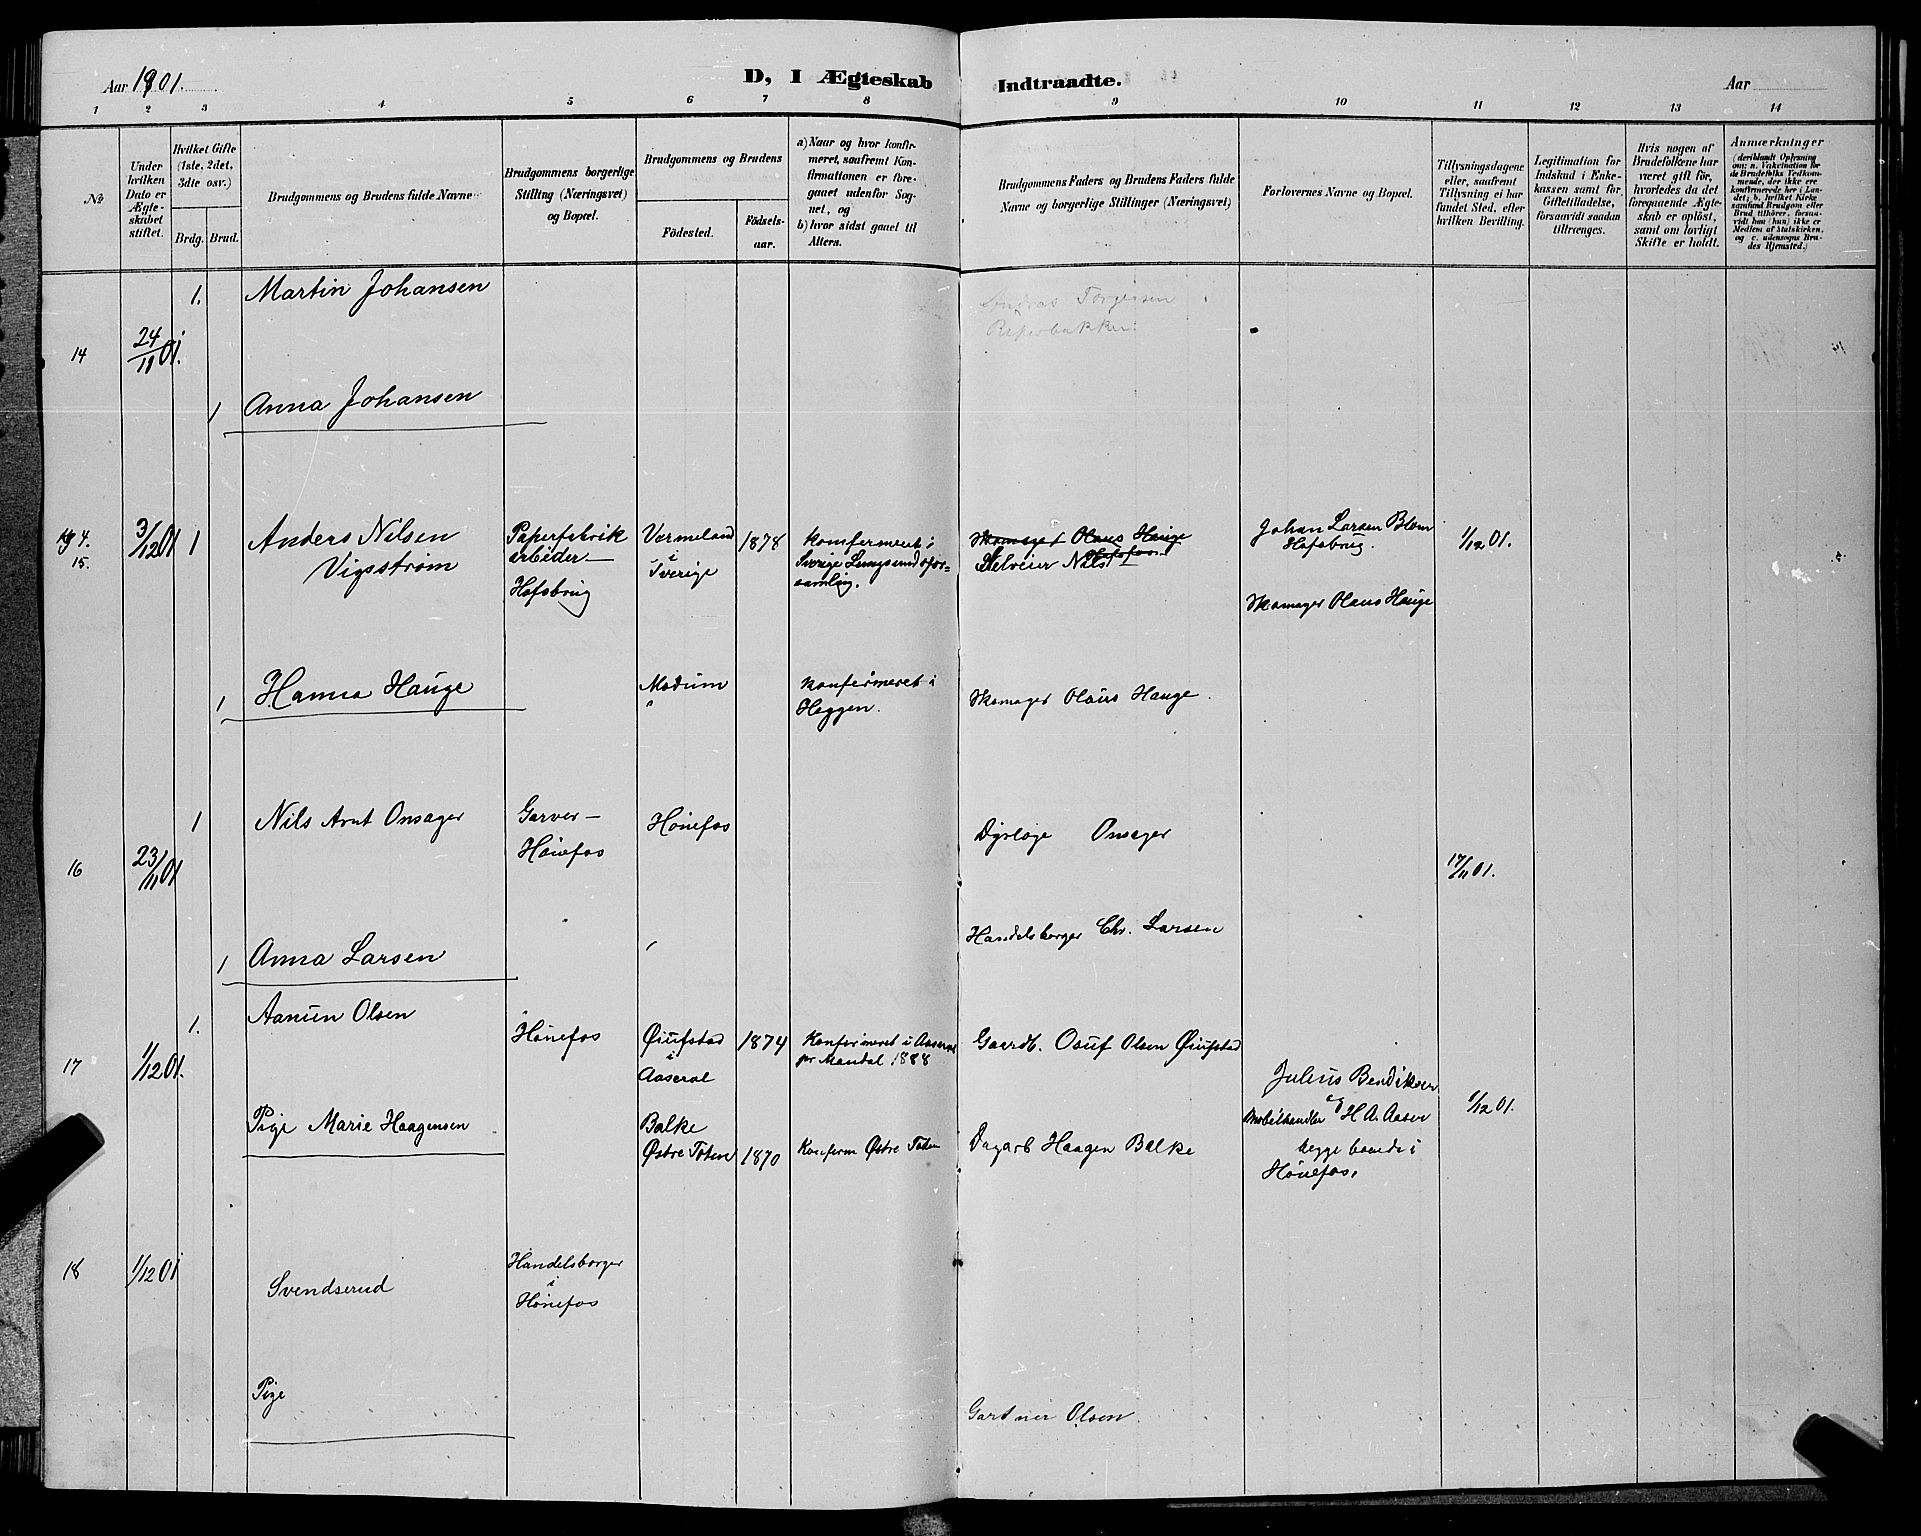 Aar 1901.
D, I Ægteskab Indtraadte.
Aar
1 2 3 4 5 6 7 8 9 10 11 12 13 14
No
Under hvilken Dato er Ægte-skabet stiftet.
Hvilket Gifte (1ste, 2det, 3die osv.)
Brdg. Brud.
Brudgommens og Brudens fulde Navne
Brudgommens borgerlige Stilling (Næringsvei) og Bopæl.
Brudgommens og Brudens
Födested.
Födsels-aar.
a) Naar og hvor konfir-meret, saafremt Kon-firmationen er fore-gaaet udenfor Sog-net, og
b) hvor sidst gaaet til Alters.
Brudgommens Faders og Brudens Faders fulde Navne og borgerlige Stillinger (Næringsvei)
Forlovernes Navne og Bopæl.
Tillysningsdagene eller, saafremt Tillysning ei har fundet Sted, efter hvilken Bevilling.
Legitimation for Indskud i Enke-kassen samt for Giftetilladelse, forsaavidt saadan tiltrænges.
Hvis nogen af Brudefolkene har været gift för, hvorledes da det foregaaende Ægte-skab er oplöst, samt om lovligt Skifte er holdt.
Anmærkninger
(deriblandt Oplysning om: a. Vakcination for de Brudefolks Vedkom-mende, der ikke ere konfirmerede her i Lan-det; b. hvilket Kirke-samfund Brudgom eller Brud tilhörer, forsaa-vidt han (hun) ikke er Medlem af Statskirken, og c. udensogns Bru-des Hjemsted.)
1. Martin Johansen
Andreas Torgersen
14 24/11 01.
1 Anna Johansen
15. 3/12 01 1 Anders Nilsen
Vigsström
Paperfabrik
arbeider—
Hofsbrug
Vermeland
i
Sverige
1878
konfermeret i
Sverige
samling.
Skomager Olaus Hauge
Nils
Johan Larsen Blom
Hofsbrug.
Skomager Olaus Hauge
1/12 01.
1 Hanna Hauge
Modum
konfermeret i
Heggen.
Skomager Olaus Hauge.
1 Nils Arnt Onsager
Garver—
Hönefos
Hönefos
Dyrlæge Onsager
16 23/11 01
17/11 01.
1 Anna Larsen
Handelsborger Chr. Larsen
1. Aanen Olsen
Hönefos
Øiufstad
i
Aaseral
1874
Konfermeret i Aaseral
pr Mandal 1888
Gaardb. Osuf Olsen Øiufstad
17 1/12 01.
Julius Bendiksen
og
Møbelhandler H A. Aasen
begge boende i
Hönefos.
1/12 01.
Pige Marie Haagensen
Balke
Østre Toten
1870
Konferm Østre Toten
Haagen Balke
18 1/12 01
Svendserud
Handelsborger
i
Hönefos
Pige
Gartner Olsen.